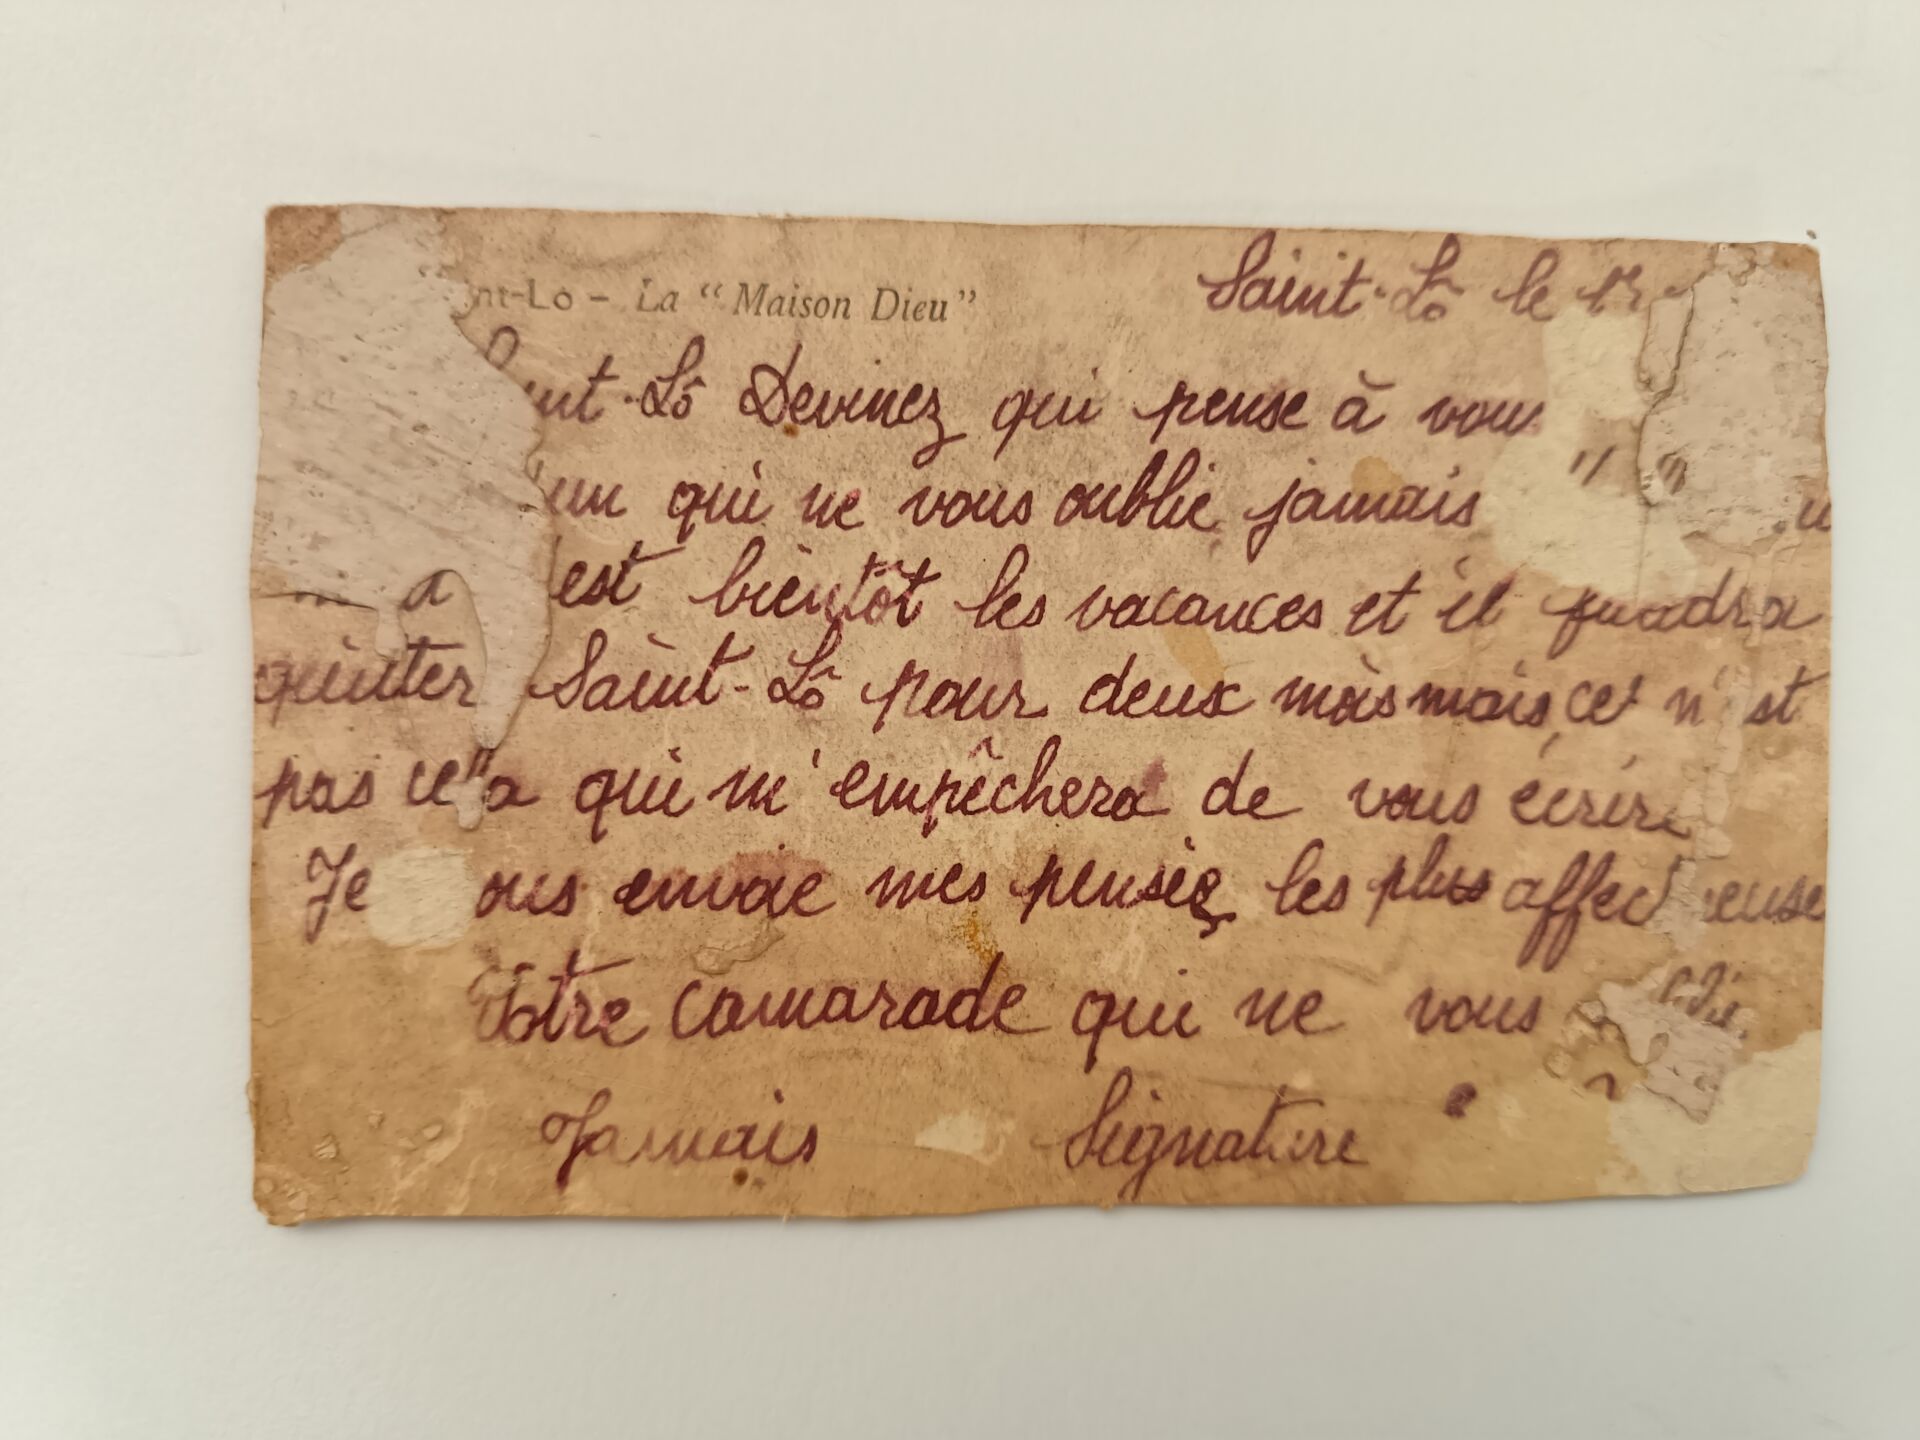 nt-Lo - La “Maison Dieu”
Saint-Lô le
Lô Devinez qui pense à vous
un qui ne vous oublie jamais
est bientôt les vacances et il faudra
quitter Saint-Lô pour deux mois mais ce n'est
pas cela qui m'empêchera de vous écrire
Je vous envoie mes pensées les plus affectueuse
Votre camarade qui ne vous
Jamais Signature